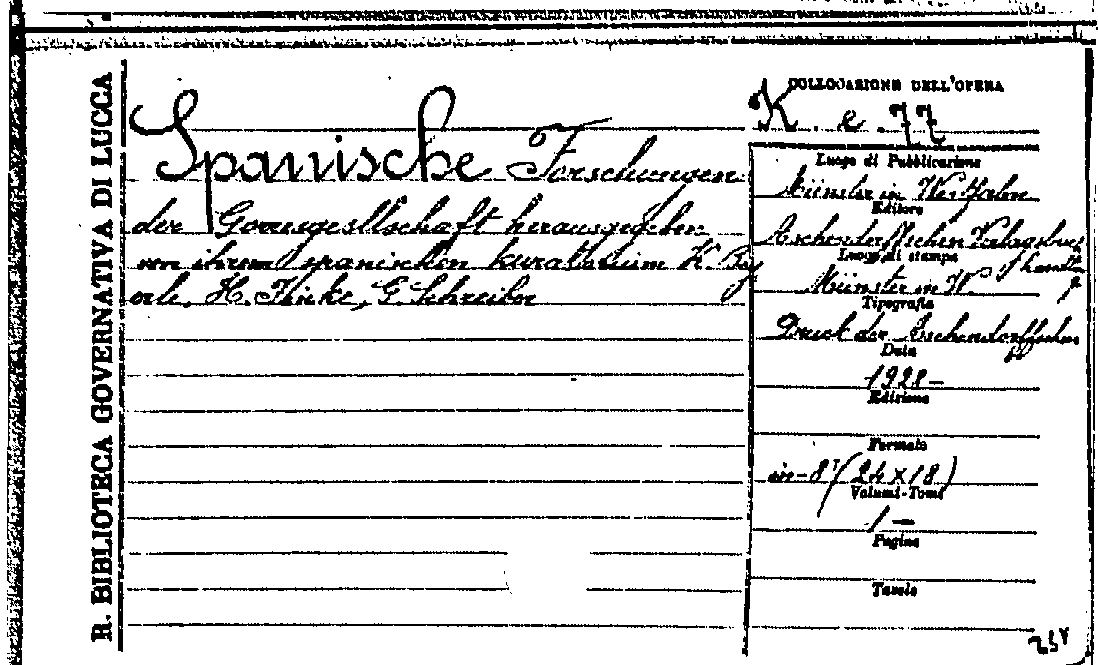 R. BIBLIOTECA GOVERNATIVA DI LUCCA
Spanische Forschungen
der Görresgesellschaft herausgegeben
von ihrem spanischen kuratorium K. Bey
erle, H. Finke, G. Schreiber
COLLOCAZIONE DELL'OPERA
K. e. 77
Luogo di Pubblicazione
Münster in Westfalen
Editore
Aschendorffschen Verlagsbuch
handlg
Luogo di stampa
Münster in W.
Tipografia
Druck der Aschendorffschen
Data
1928-
Edizione
Formato
in-8° (24 x 18)
Volumi-Tomi
1 —
Pagine
Tavole